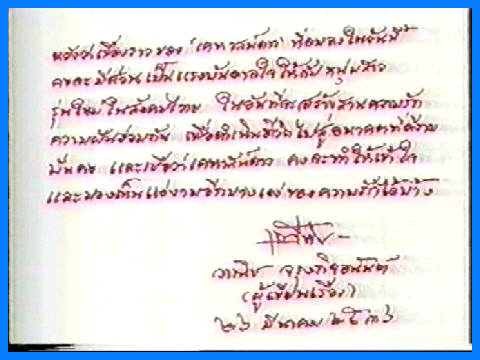 หวังว่าเรื่องราวของ "เทพ
คงจะมีส่วนเป็นแรงบันดาลใจให้กับหนุ่มสาว
รุ่นใหม่ในสังคมไทย ในอันที่จะสร้างสานความรัก
ความฝันร่วมกัน เพื่อดำเนินชีวิตไปสู่อนาคตที่
มั่นคง และเชื่อว่า คงจะทำให้เข้าใจ
และมองเห็นแง่งามอีกบางแง่ของความรักได้บ้าง
วาณิช จรุงกิจอนันต์
(ผู้เขียนเรื่อง)
๒๖ มีนาคม ๒๕๓๖